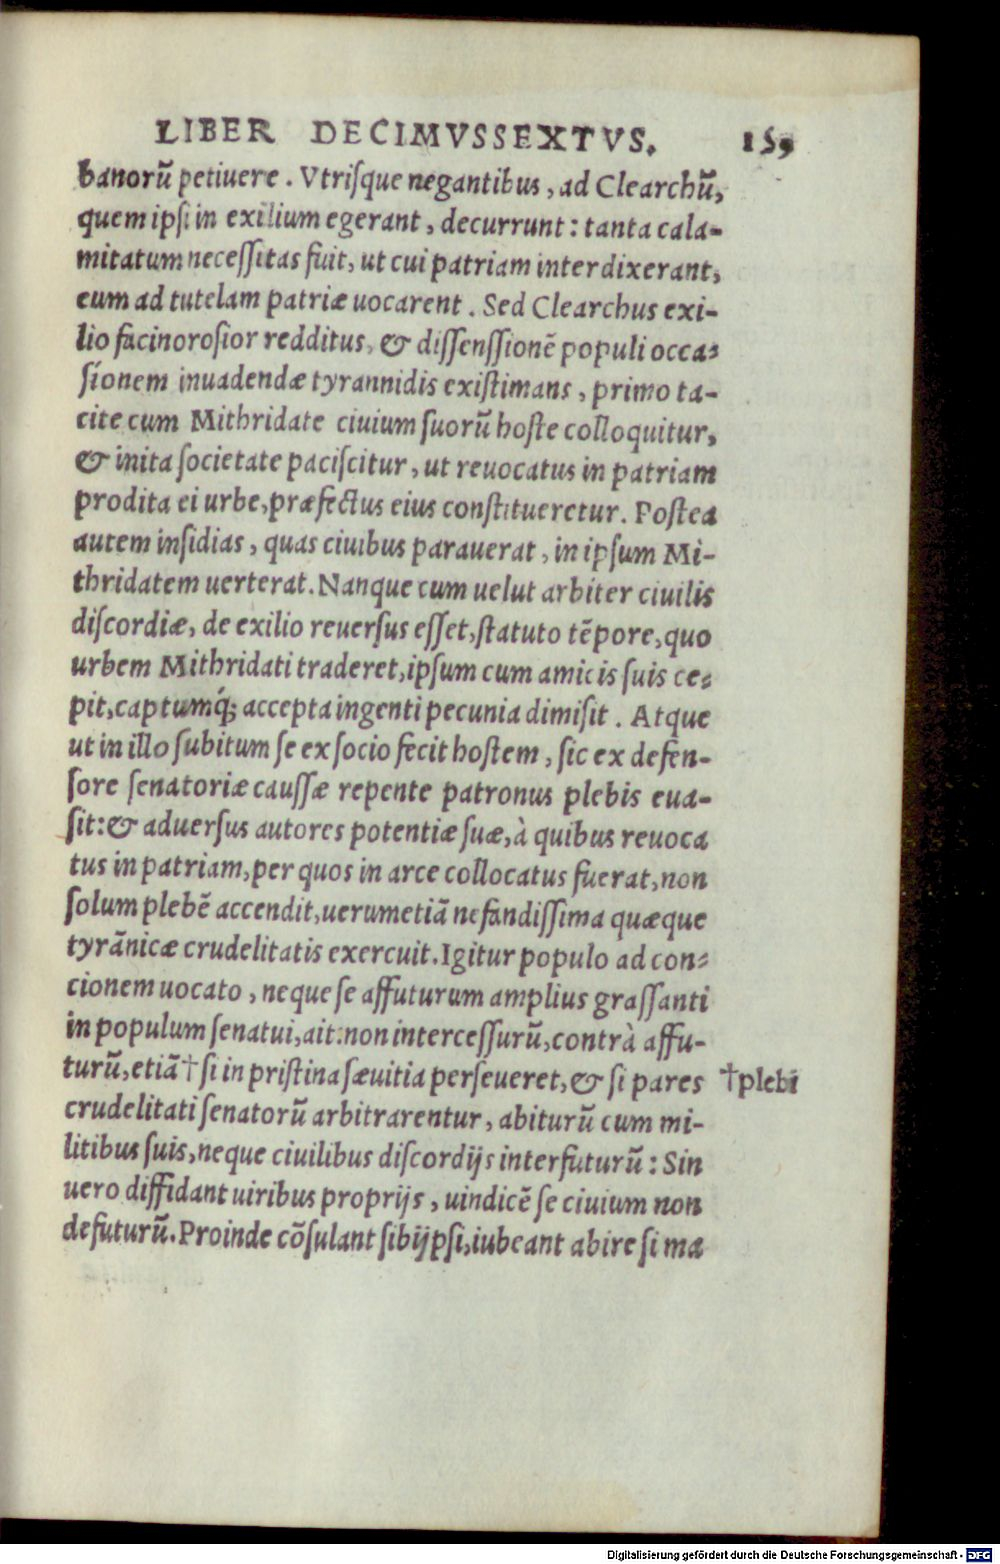 LIBER DECIMVSSEXTVS. 159
banorũ petiuere. Vtriſque negantibus, ad Clearchũ,
quem ipſi in exilium egerant, decurrunt: tanta cala-
mitatum neceſſitas fuit, ut cui patriam interdixerant,
eum ad tutelam patriæ uocarent. Sed Clearchus exi-
lio facinoroſior redditus, & diſſenſſionẽ populi occa-
ſionem inuadendæ tyrannidis exiſtimans, primo ta-
cite cum Mithridate ciuium ſuorũ hoſte colloquitur,
& inita ſocietate paciſcitur, ut reuocatus in patriam
prodita ei urbe, præfectus eius conſtitueretur. Poſtea
autem inſidias, quas ciuibus parauerat, in ipſum Mi-
thridatem uerterat. Nanque cum uelut arbiter ciuilis
diſcordiæ, de exilio reuerſus eſſet, ſtatuto tẽpore, quo
urbem Mithridati traderet, ipſum cum amicis ſuis ce-
pit, captumq́; accepta ingenti pecunia dimiſit. Atque
ut in illo ſubitum ſe ex ſocio fecit hoſtem, ſic ex defen-
ſore ſenatoriæ cauſſæ repente patronus plebis eua-
ſit: & aduerſus autores potentiæ ſuæ, à quibus reuoca
tus in patriam, per quos in arce collocatus fuerat, non
ſolum plebẽ accendit, uerumetiã nefandiſſima quæque
tyrãnicæ crudelitatis exercuit. Igitur populo ad con-
cionem uocato, neque ſe affuturum amplius graſſanti
in populum ſenatui, ait: non interceſſurũ, contrà affu-
turũ, etiã † ſi in priſtina ſæuitia perſeueret, & ſi pares † plebi
crudelitati ſenatorũ arbitrarentur, abiturũ cum mi-
litibus ſuis, neque ciuilibus diſcordijs interfuturũ: Sin
uero diffidant uiribus proprijs, uindicẽ ſe ciuium non
defuturũ. Proinde cõſulant ſibijpſi, iubeant abire ſi ma
Digitalisierung gefördert durch die Deutsche Forschungsgemeinschaft - DFG